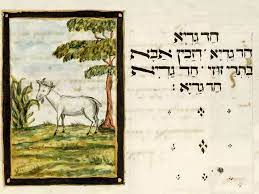 חד גדיא
חד גדיא דזבין אבא
בתרי זוזי חד גדיא
חד גדיא: